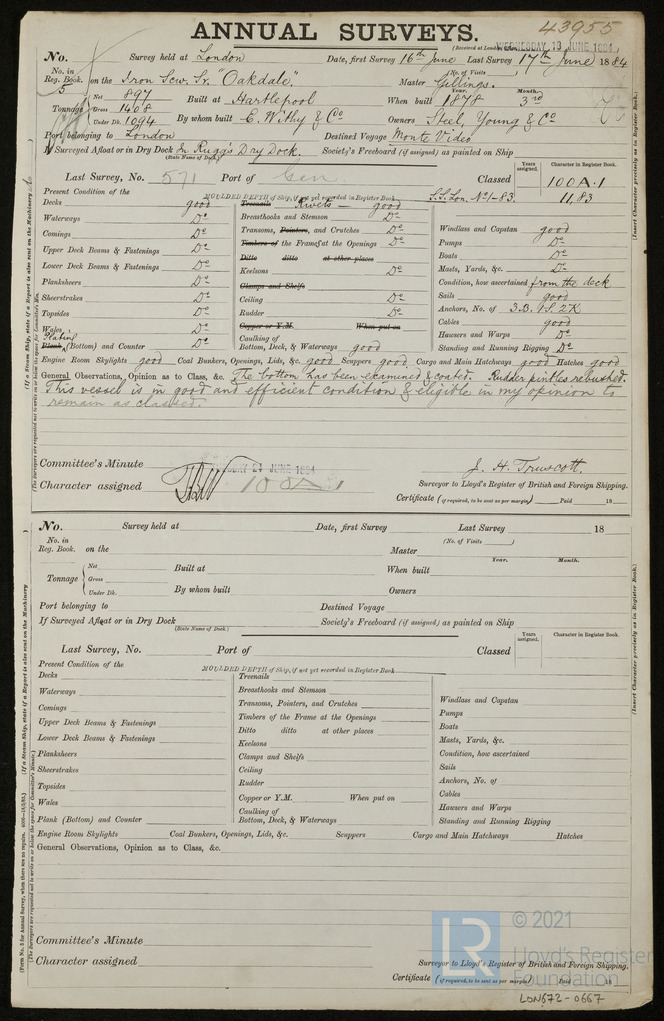 43955
ANNUAL SURVEYS.
(Received at London Office, WEDNESDAY 19 JUNE 1884)
No. Survey held at London Date, first Survey 16th June Last Survey 17th June 1884
(No. of Visits )
No. in Reg. Book. on the Iron Scw. Sr. "Oakdale" Master Gillings.
5
Year. Month.
Tonnage Net 897 Built at Hartlepool When built 1878 3rd
Gross 1408
Under Dk. 1094 By whom built E. Withy & Co Owners Steel, Young & Co
Port belonging to London Destined Voyage Monte Video
If Surveyed Afloat or in Dry Dock In Rugg's Dry Dock. Society's Freeboard (if assigned) as painted on Ship
(State Name of Dock.)
Years assigned. Character in Register Book.
Last Survey, No. 571 Port of Gen. Classed 100A.1
S.S. Lon. No 1-83. 11,83
Present Condition of the MOULDED DEPTH of Ship, if not yet recorded in Register Book
Decks good Treenails Rivets — good
Waterways Do Breasthooks and Stemson Do
Comings Do Transoms, Pointers, and Crutches Do Windlass and Capstan good
Upper Deck Beams & Fastenings Do Timbers of the Frames at the Openings Do Pumps Do
Ditto ditto at other places Boats Do
Lower Deck Beams & Fastenings Do Keelsons Do Masts, Yards, &c. Do
Planksheers Do Clamps and Shelfs Condition, how ascertained from the deck
Sheerstrakes Do Ceiling Do Sails good
Topsides Do Rudder Do Anchors, No. of 3.B. 1S. 2K
Wales Do Copper or Y.M. When put on Cables good
Plating
Plank (Bottom) and Counter Do Caulking of Bottom, Deck, & Waterways good Hawsers and Warps Do
Standing and Running Rigging Do
Engine Room Skylights good Coal Bunkers, Openings, Lids, &c. good Scuppers good Cargo and Main Hatchways good Hatches good
General Observations, Opinion as to Class, &c. The bottom has been examined & coated. Rudder pintles rebushed.
This vessel is in good and efficient condition & eligible in my opinion to
remain as classed.
Committee's Minute 24 JUNE 1884 J. H. Truscott.
Character assigned 100A1 Surveyor to Lloyd's Register of British and Foreign Shipping.
Certificate (if required, to be sent as per margin) Paid 18
(If a Steam Ship, state if a Report is also sent on the Machinery
(The Surveyors are requested not to write on or below the space for Committee's Minute.)
(Insert Character precisely as in Register Book.)
No. Survey held at Date, first Survey Last Survey 18
(No. of Visits )
No. in Reg. Book. on the Master
Year. Month.
Tonnage Net Built at When built
Gross
Under Dk. By whom built Owners
Port belonging to Destined Voyage
If Surveyed Afloat or in Dry Dock Society's Freeboard (if assigned) as painted on Ship
(State Name of Dock.)
Years assigned. Character in Register Book.
Last Survey, No. Port of Classed
Present Condition of the MOULDED DEPTH of Ship, if not yet recorded in Register Book
Decks Treenails
Waterways Breasthooks and Stemson
Comings Transoms, Pointers, and Crutches Windlass and Capstan
Upper Deck Beams & Fastenings Timbers of the Frame at the Openings Pumps
Ditto ditto at other places Boats
Lower Deck Beams & Fastenings Keelsons Masts, Yards, &c.
Planksheers Clamps and Shelfs Condition, how ascertained
Sheerstrakes Ceiling Sails
Topsides Rudder Anchors, No. of
Wales Copper or Y.M. When put on Cables
Caulking of Hawsers and Warps
Plank (Bottom) and Counter Bottom, Deck, & Waterways Standing and Running Rigging
Engine Room Skylights Coal Bunkers, Openings, Lids, &c. Scuppers Cargo and Main Hatchways Hatches
General Observations, Opinion as to Class, &c.
Committee's Minute
Character assigned Surveyor to Lloyd's Register of British and Foreign Shipping.
Certificate (if required, to be sent as per margin) Paid 18
(If a Steam Ship, state if a Report is also sent on the Machinery
(The Surveyors are requested not to write on or below the space for Committee's Minute.)
(Insert Character precisely as in Register Book.)
LR © 2021
Lloyd's Register
Foundation
LON672-0667